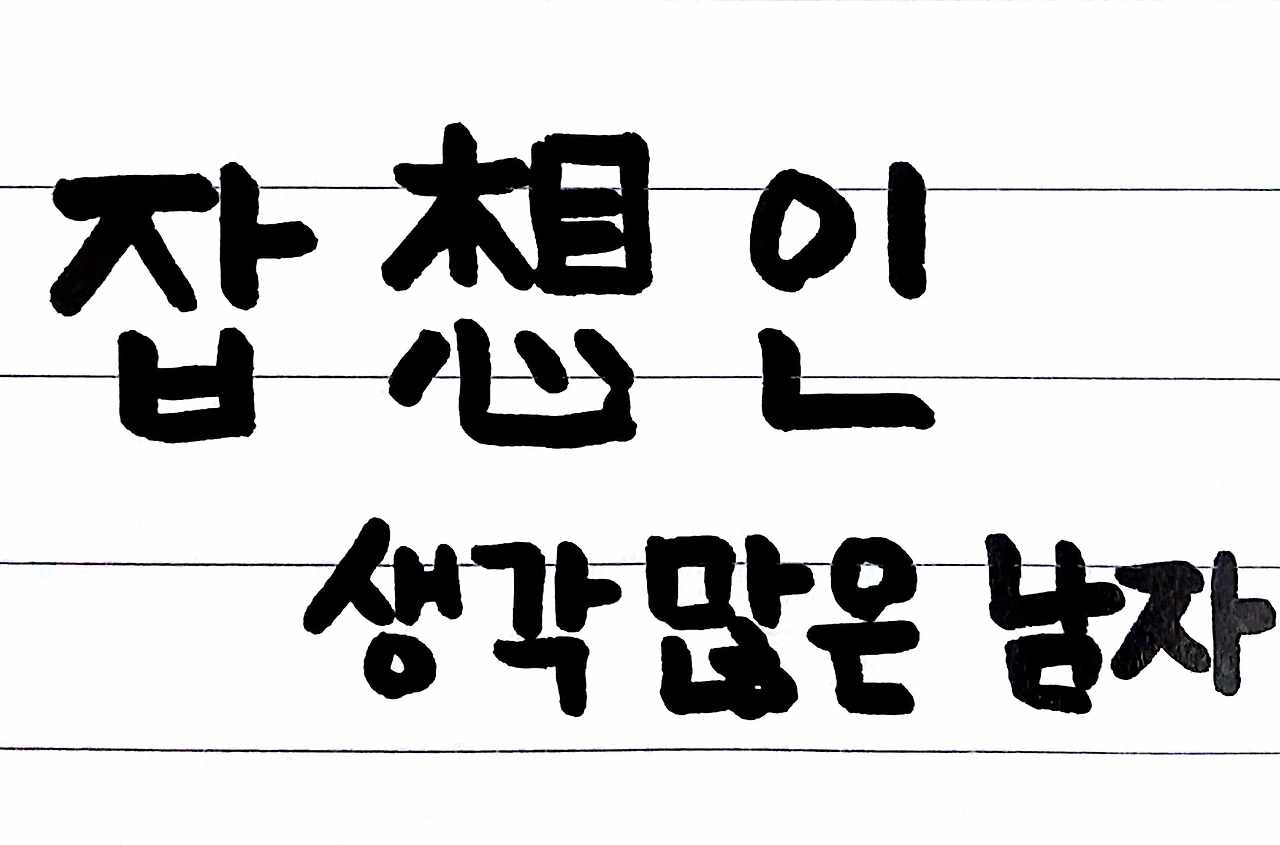 잡想인
생각많은 남자